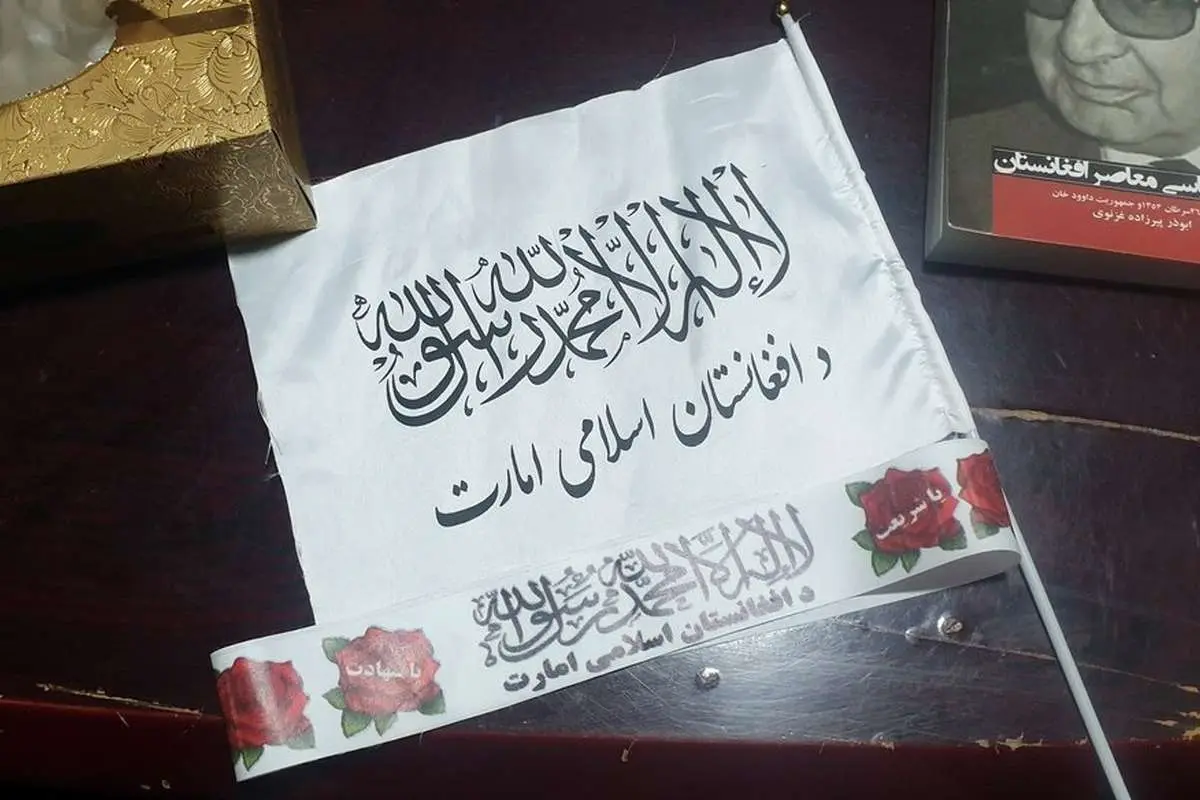 لا إله إلا الله محمد رسول الله
د افغانستان اسلامي امارت
یا شریعت
لا إله إلا الله محمد رسول الله
د افغانستان اسلامي امارت
یا شهادت
سی معاصر افغانستان
۲۶سرطان ۱۳۵۲و جمهوریت داوود خان
ابوذر پیرزاده غزنوی